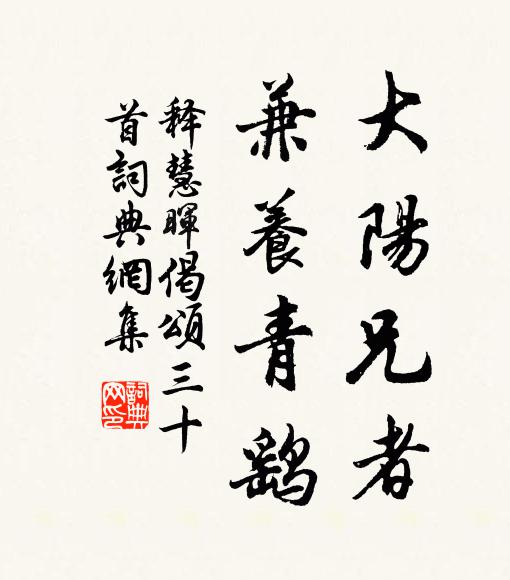 大陽兄者
兼養青鷂
释慧暉偈頌三十
首詞典網集
詞典
网印